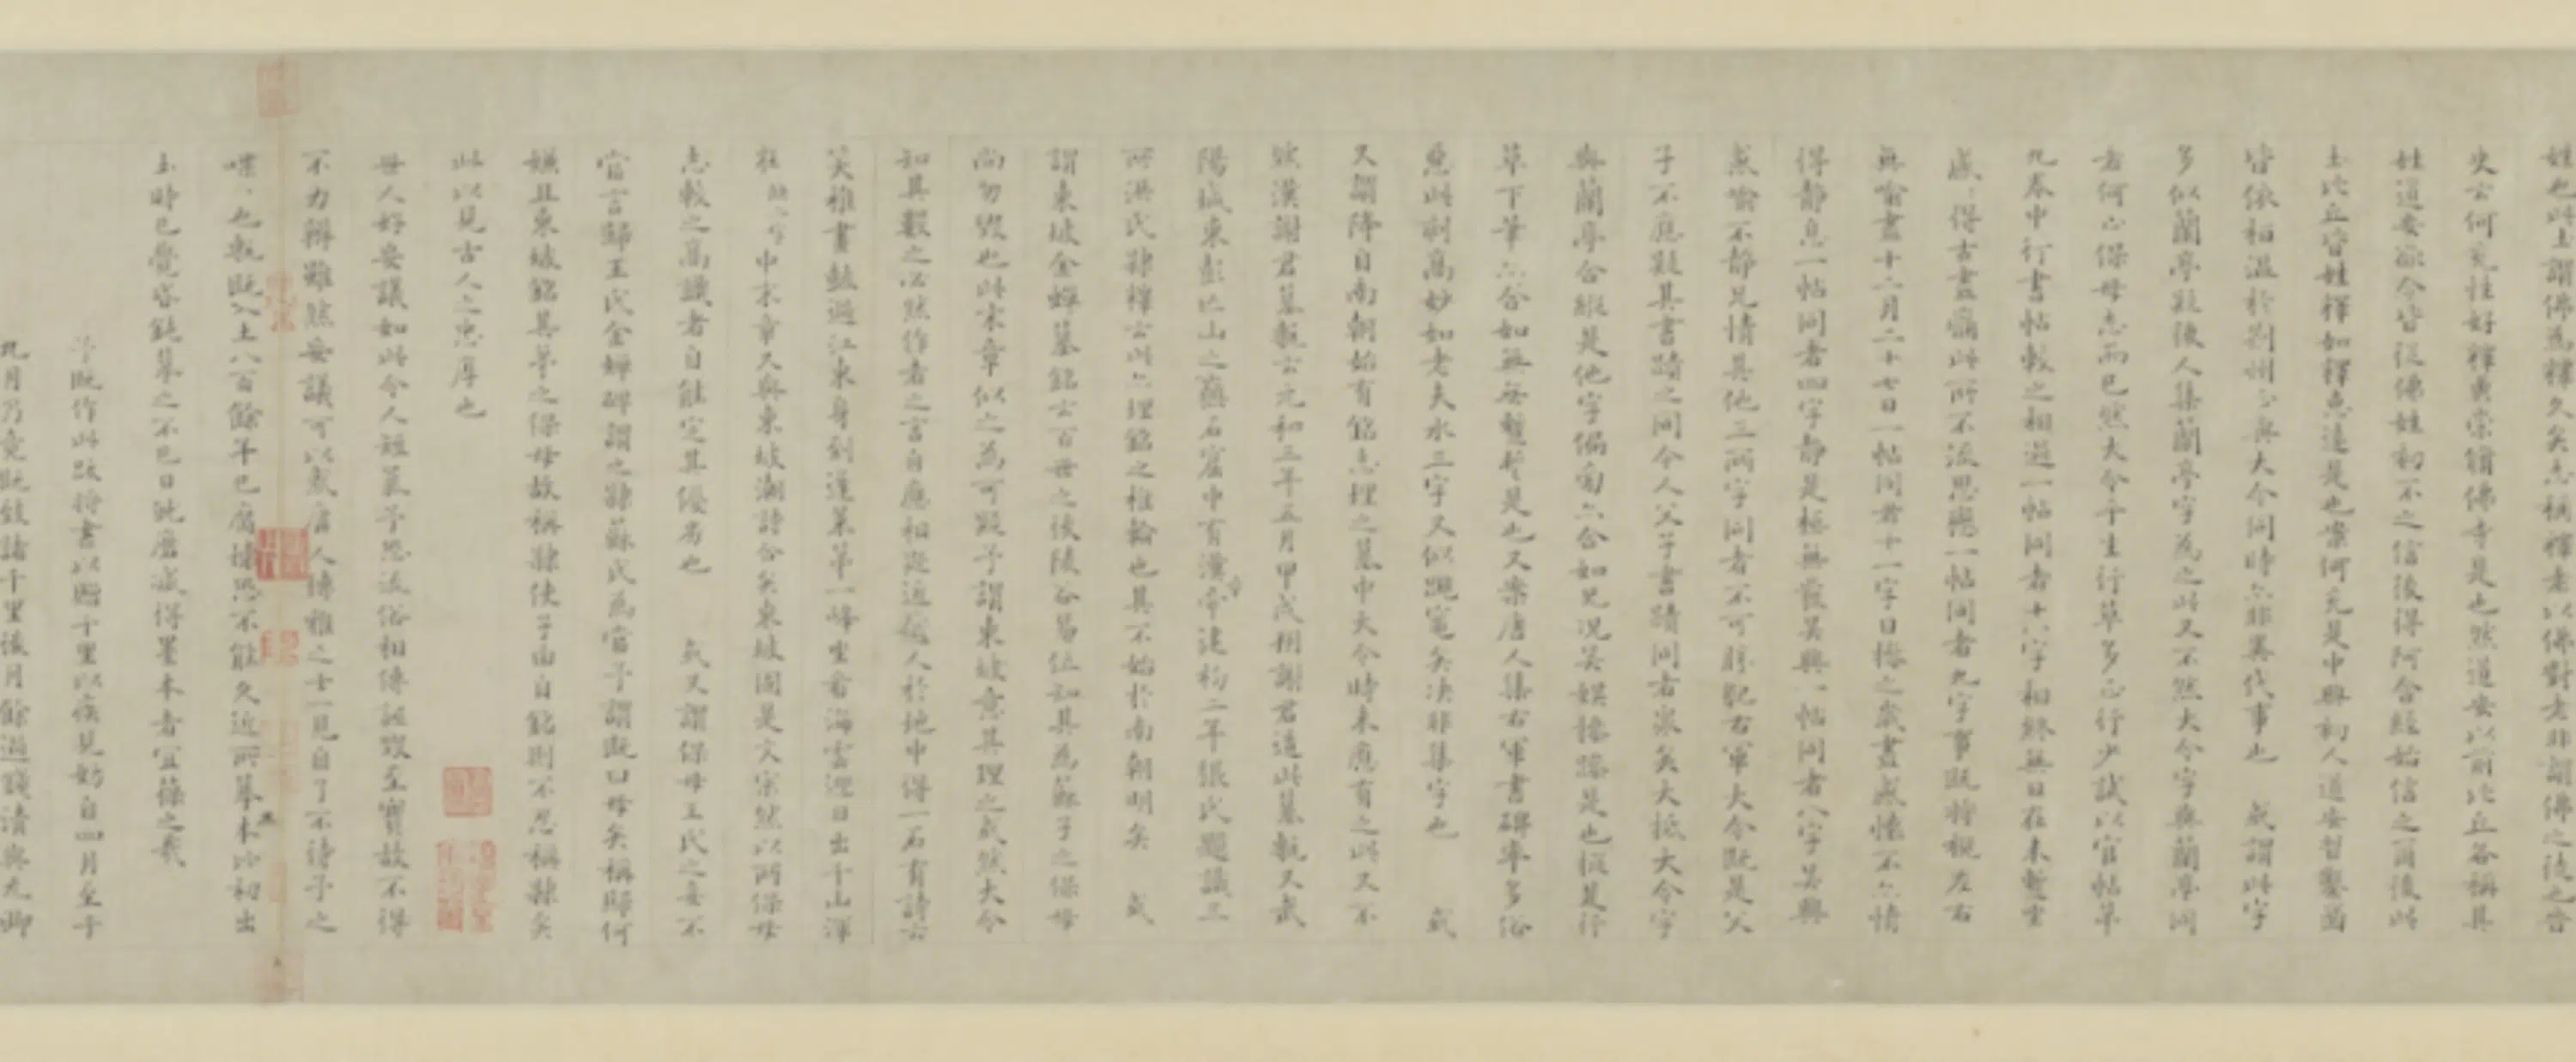 姓也此土謂佛為釋久矣志稱釋老以佛對老非謂佛之徒也晉
史云何充性好釋典崇脩佛寺是也然道安以前比丘各稱其
姓道安欲令皆從佛姓初不之信後得阿含經始信之爾後此
土比丘皆姓釋如釋惠遠是也案何充是中興初人道安習鑿齒
皆依桓溫於荊州亦與大令同時亦非異代事也 或謂此字
多似蘭亭疑後人集蘭亭字為之此又不然大令字與蘭亭同
者何止保母志而已然大令平生行草多正行少試以官帖第
九卷中行書帖較之相過一帖同者十六字相終無日在未蹔坐
感得古書此所不流思戀一帖同者九字事既將視左右
無喻畫十二月二十七日一帖同者十一字日之歲盡感懷不亦情
得靜息一帖同者四字靜是極無吳興一帖同者八字吳興
感喻不靜兄情其他三兩字同者不可勝記右軍大令既是父
子不應疑其書蹟之同今人父子書蹟同者眾矣大抵大令字
與蘭亭合縱是他字偏旁亦合如兄況吳娛是也縱是行
草下筆亦合如無是也又案唐人集右軍書碑率多俗
惡此刻高妙如老夫水三字又似過矣決非集字也 或
又謂降自南朝始有銘志埋之墓中大令時未應有之此又不
然漢謝君墓甎云元和三年五月甲戌朔謝君造此墓甎又武
陽城東彭亡山之巔石窟中有漢章帝建初二年張氏題識三
所洪氏隸釋云此亦埋銘之椎輪也其不始於南朝明矣 或
謂東坡金蟬墓銘云百世之後陵谷易位知其為蘇子之保母
尚勿毀也此末章似之為可疑予謂東坡意其理之或然大令
知其數之必然作者之言自應相近越人於地中得一石有詩云
笑雅書過江來身到蓬萊第一峰坐看海雲迎日出千山渾
在中末章又與東坡湖詩合矣東坡固是文宗然以所保母
志較之高識者自能定其優劣也 或又謂保母王氏之妾不
當言歸王氏金蟬碑謂之隸蘇氏為當予謂既曰母矣稱歸何
嫌且東坡銘其弟之保母故稱隸使子由自銘則不忍稱隸矣
此以見古人之忠厚也
世人好妄議如此今人短策予恐流俗相傳詆毀至寶故不得
不力辯雖然妄議可以惑庸人博雅之士一見自了不待予之
喋〻也甎既入土八百餘年已腐壞恐不能久近所摹本比初出
土時已覺昏鈍摹之不已日就磨滅得墨本者宜葆之哉
予既作此跋將書以貽千里以疾見妨自四月至于
九月乃竟既致諸千里後月餘過錢清與元卿